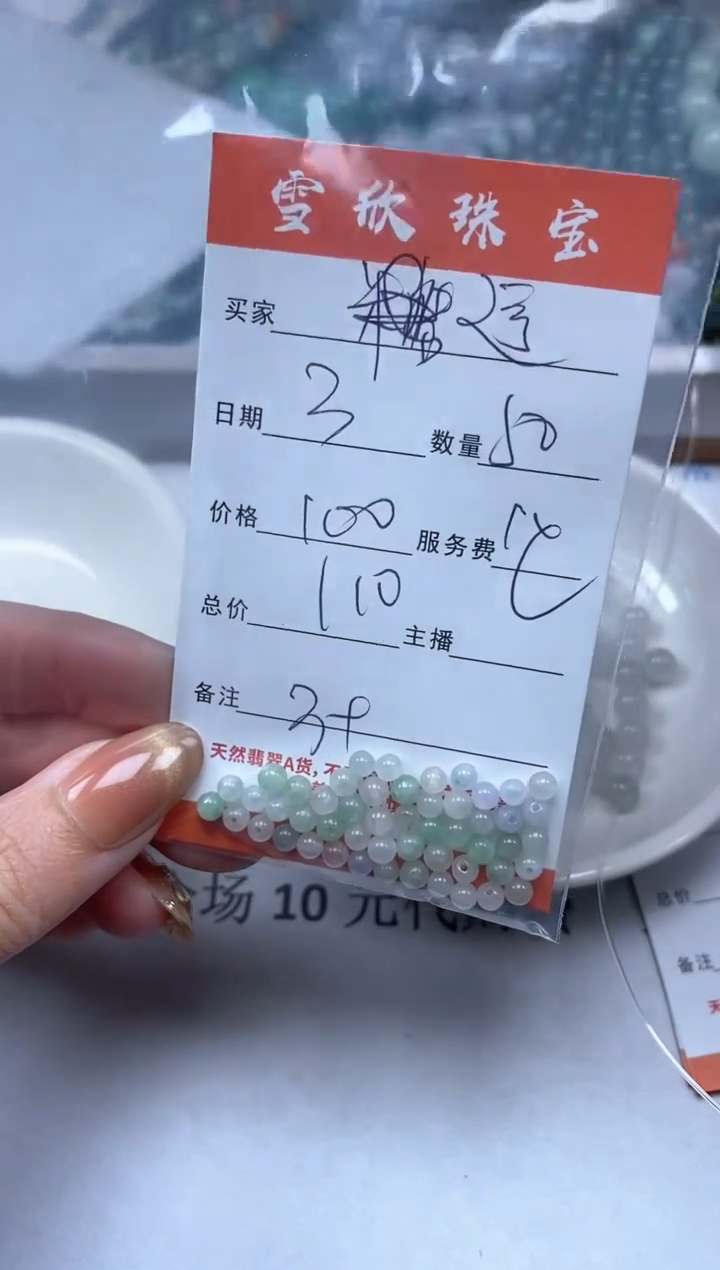 雪欣珠宝
买家
日期 3 数量 50
价格 100 服务费 10
总价 110 主播
备注 3+
天然翡翠A货,不
场10元代
总价
备注
天